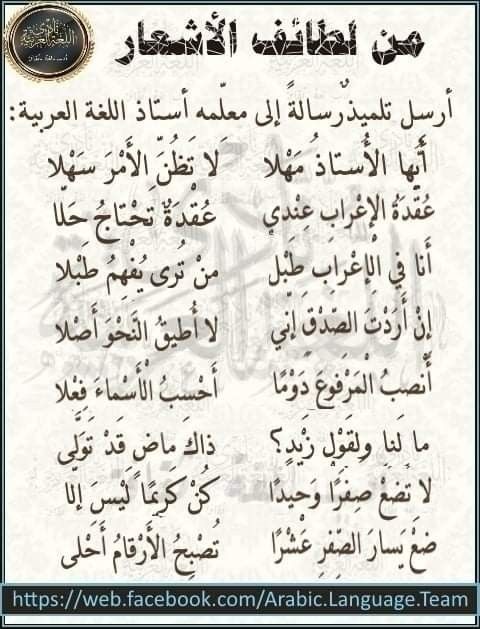 اللغة العربية
من لطائف الأشعار
أرسل تلميذٌ رسالةً إلى معلّمه أستاذ اللغة العربية:
أَيُّها الأُستاذُ مَهْلا لا تَظُنّ الأَمْرَ سَهْلا
عُقْدَةُ الإعْرابِ عِنْدِي عُقْدَةٌ تَحْتاجُ حَلّا
أَنا فِي الْإعْرابِ طَبْلٌ مَنْ تُرى يُفْهِمُ طَبْلا
إنْ أَرَدْتَ الصِّدْقَ إنّي لا أُطِيقُ النَّحْوَ أَصْلا
أَنْصِبُ الْمَرْفُوعَ دَوْمًا أَحْسِبُ الْأَسْماءَ فِعْلا
ما لَنا ولِقَوْلِ زَيْدٍ؟ ذاكَ ماضٍ قَدْ تَوَلّى
لا تَضَعْ صِفْرًا وَحِيدًا كُنْ كَرِيمًا لَيْسَ إلا
ضَعْ يَسارَ الصِّفْرِ عَشْرًا تُصْبِحُ الأَرْقامُ أَحْلى
https://web.facebook.com/Arabic.Language.Team